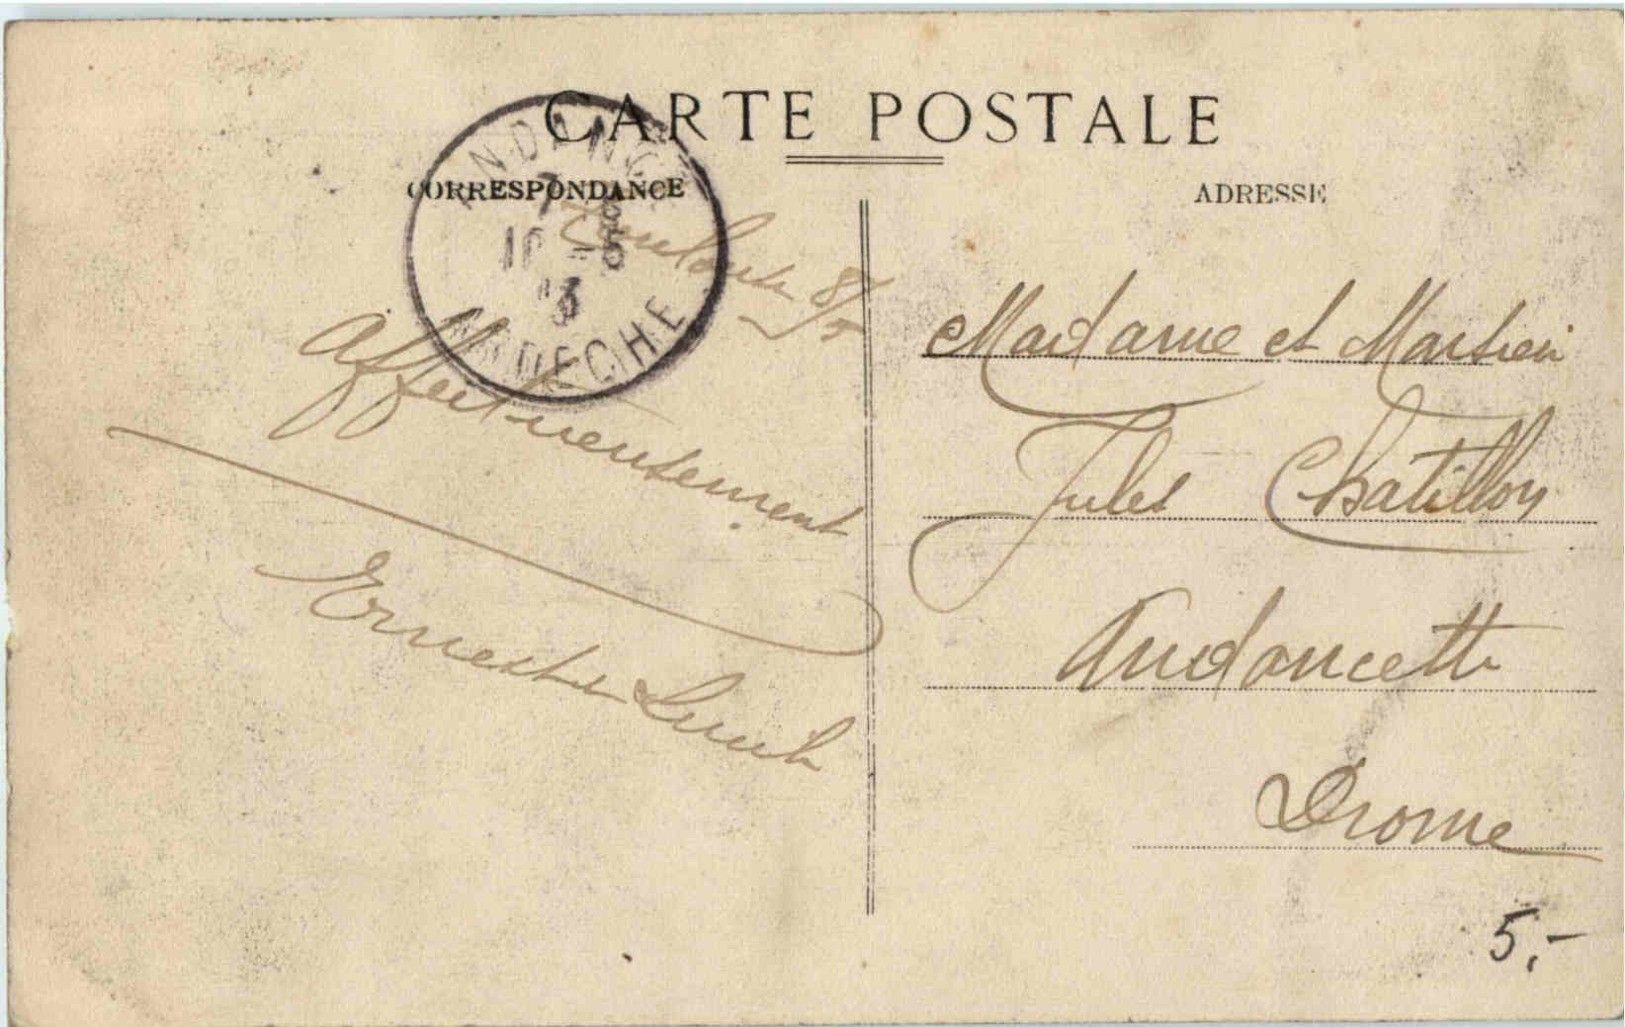 CARTE POSTALE
CORRESPONDANCE
ADRESSE
ANDANCE
ARDECHE
Toulouse 8/5
Affectueusement
Ernest
Madame et Monsieur
Jules Chatillon
Andancette
Drome
5,-